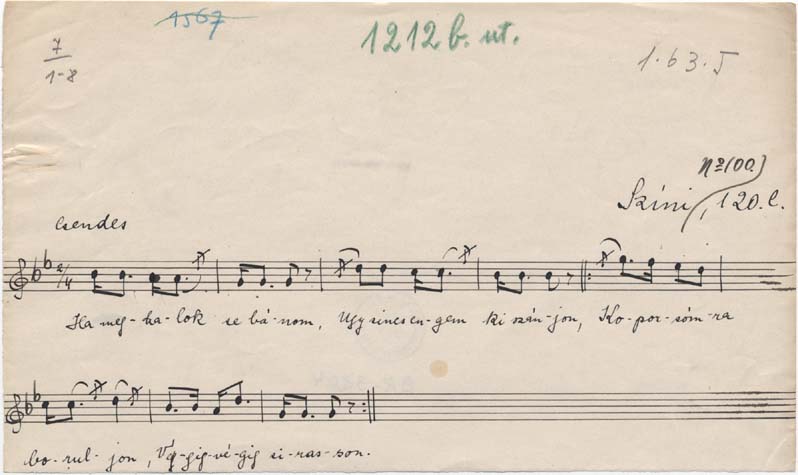 1567
1212 b. ut.
7
1-8
1.63.J
No 100.)
Színi, 120.l.
Csendes
2/4
Ha meg-ha-lok se bá-nom, Ugy sincsen-gem ki szán-jon, Ko-por-sóm-ra
bo-rul-jon, Vég-gig-vé-gig si-ras-son.